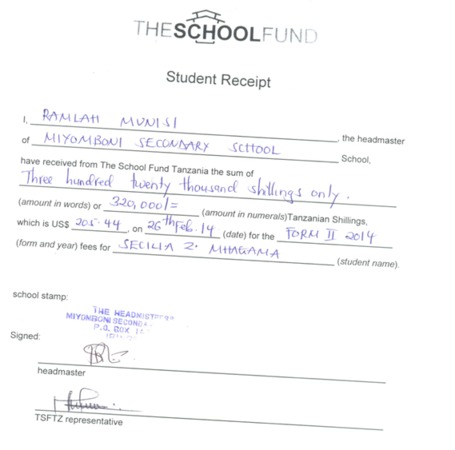 THESCHOOLFUND
Student Receipt
I, RAMLAH MUNISI, the headmaster
of MIYOMBONI SECONDARY SCHOOL School,
have received from The School Fund Tanzania the sum of
Three hundred twenty thousand shillings only.
(amount in words) or 320,000/= (amount in numerals)Tanzanian Shillings,
which is US$ 205.44, on 26th Feb. 14 (date) for the FORM II 2014
(form and year) fees for SECILIA Z. MHAGAMA (student name).
school stamp:
THE HEADMISTRESS
MIYOMBONI SECONDA
P.O. BOX
Signed:
headmaster
TSFTZ representative